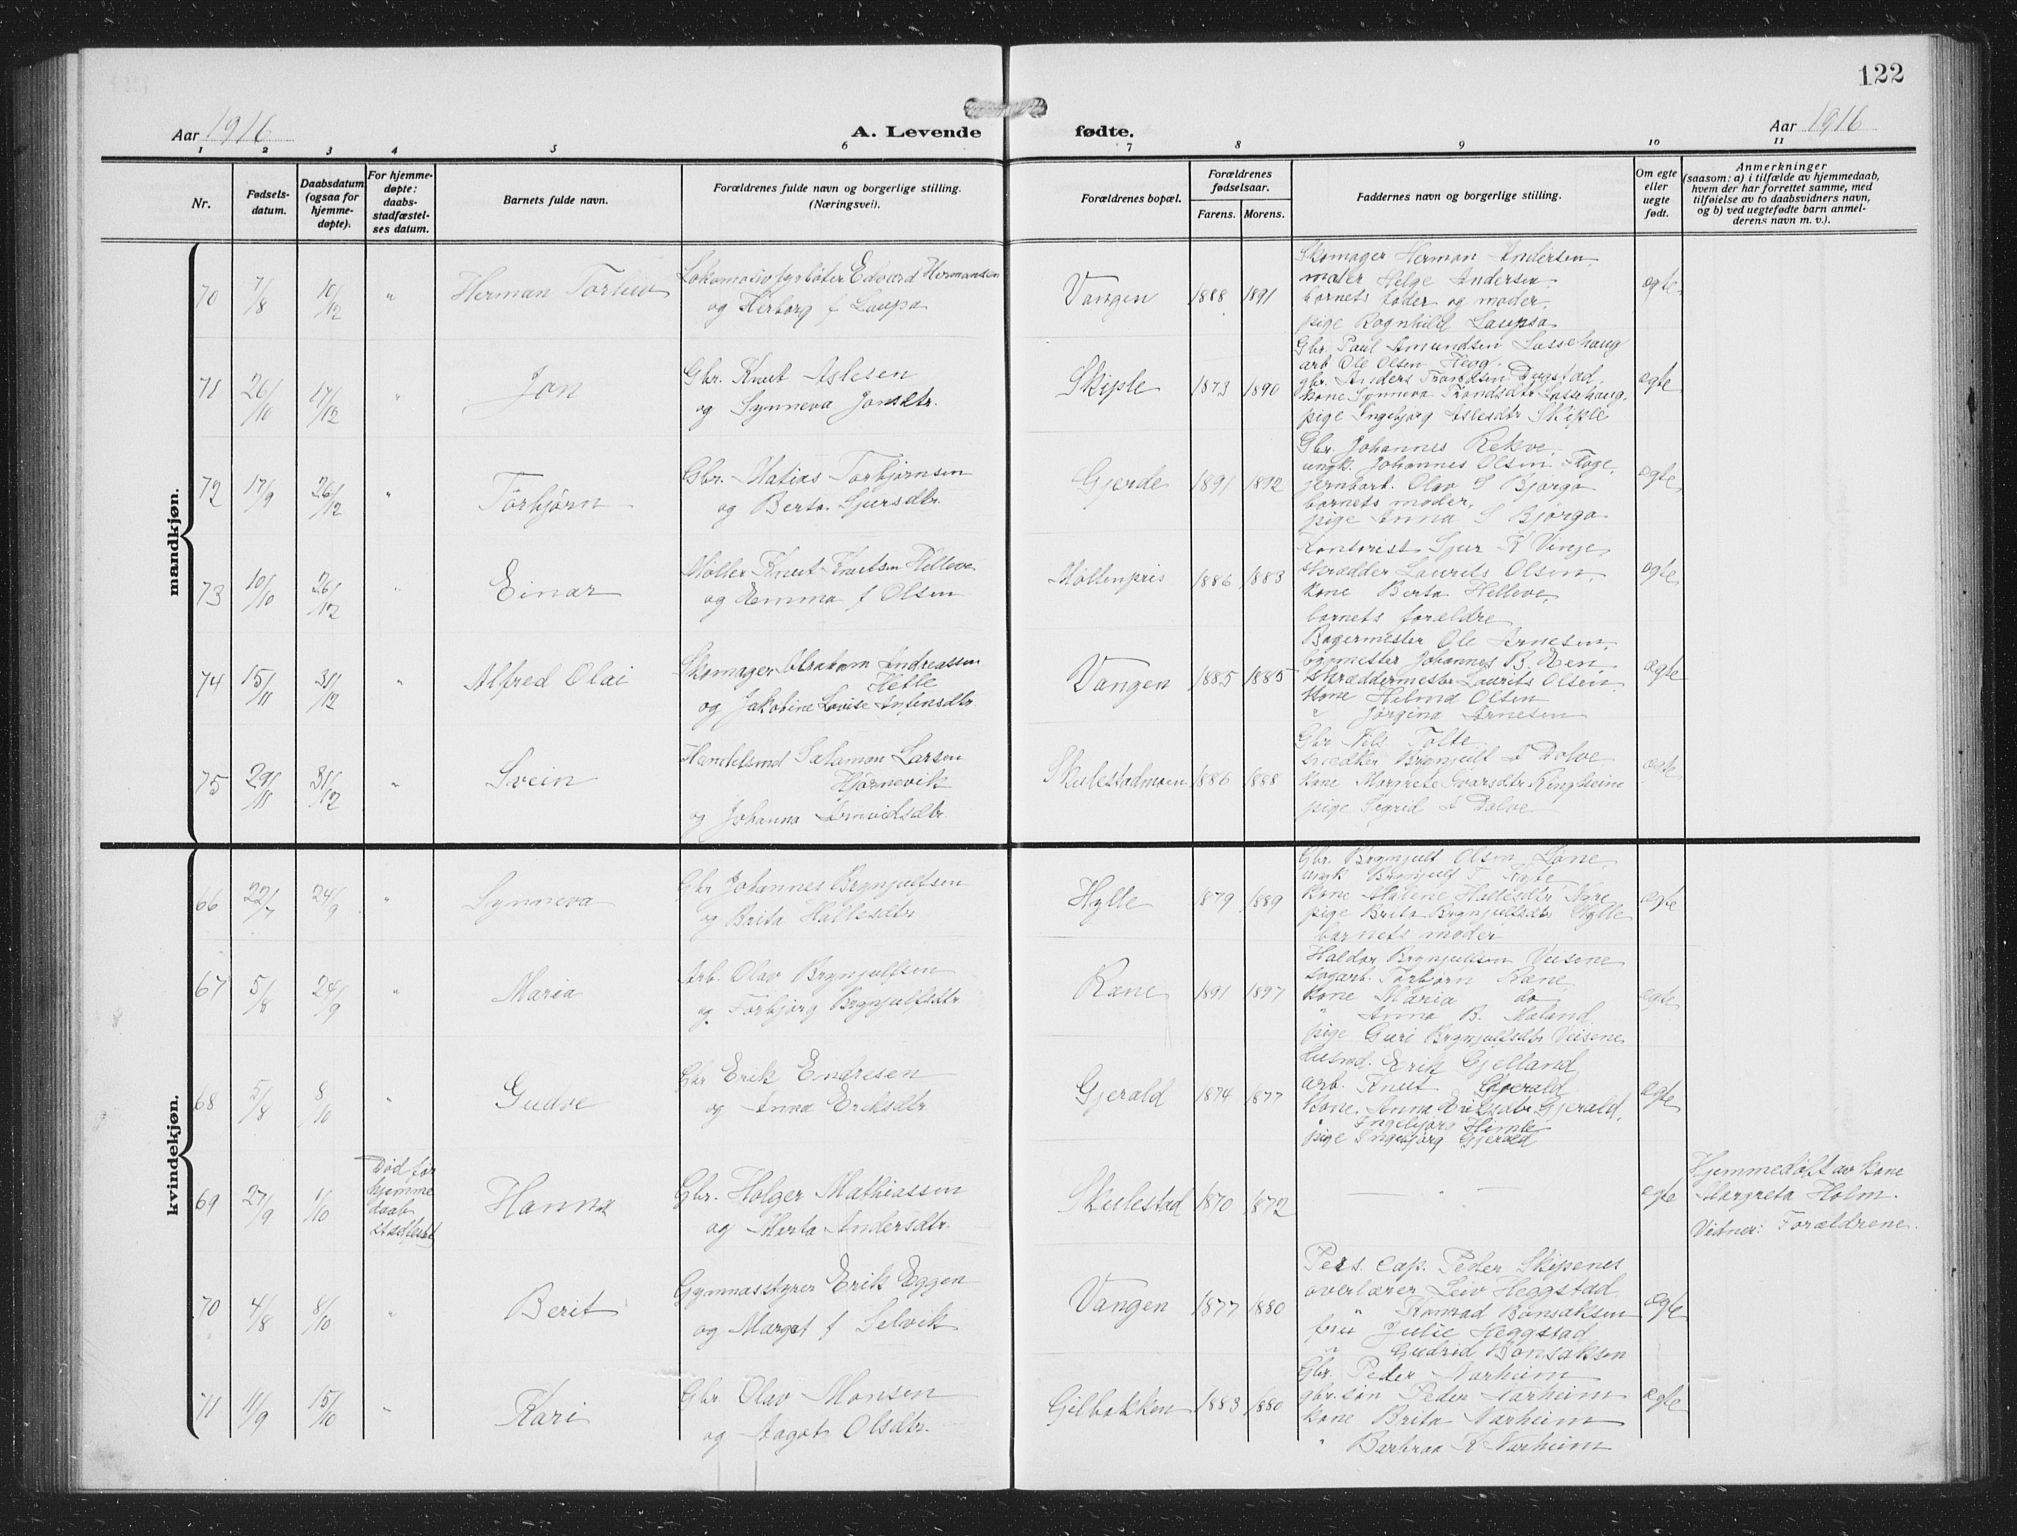 122
Aar 1916
A. Levende fødte.
Aar 1916
1 2 3 4 5 6 7 8 9 10 11
Nr.
Fødsels-
datum.
Daabsdatum
(ogsaa for
hjemme-
døpte).
For hjemme-
døpte:
daabs-
stadfæstel-
ses datum.
Barnets fulde navn.
Forældrenes fulde navn og borgerlige stilling.
(Næringsvei).
Forældrenes bopæl.
Forældrenes
fødselsaar.
Farens. Morens.
Faddernes navn og borgerlige stilling.
Om egte
eller
uegte
født.
Anmerkninger
(saasom: a) i tilfælde av hjemmedaab,
hvem der har forrettet samme, med
tilføielse av to daabsvidners navn,
og b) ved uegtefødte barn anmel-
derens navn m. v.).
mandkjøn.
70 7/8 10/12 " Herman Torleiv
Lokomotivfyrbøter Edvard Hermansen
og Herborg f Laupsa
Vangen 1888 1891
Skomager Herman Andersen,
maler Helge Andersen
barnets fader og moder,
pige Ragnhild Laupsa
egte
71 26/10 17/12 " Jon
Gbr. Knut Aslesen
og Synneva Jonsdtr.
Skiple 1873 1890
Gbr. Paul Amundsen Lassehaug
arb Ole Olsen Hegg.
gbr. Anders Trondsen Dugstad,
kone Synneva Trondsdtr Lassehaug,
pige Ingebjørg Aslesdtr Skiple
egte
72 17/9 26/12 " Torbjørn
Gbr. Matias Torbjørnsen
og Berta Sjursdtr.
Gjerde 1891 1892
Gbr. Johannes Rekve,
ungk. Johannes Olsen Flage,
jernbarb. Olav S Bjørgo
barnets moder,
pige Anna S Bjørgo
egte
73 10/10 26/12 " Einar
Møller Knut Knutsen Helleve
og Emma f Olsen
Møllenpris 1886 1883
Kontorist Sjur K Vinje,
skrædder Laurits Olsen,
kone Berta Helleve,
barnets forældre
egte
74 15/11 31/12 " Alfred Olai
Skomager Abraham Andreassen
Helle
og Jakobine Lovise Antonsdtr
Vangen 1885 1885
Bagermester Ole Arnesen,
Johannes B. Øen
skræddermester Laurits Olsen,
kone Helmd Olsen
" Jørgina Arnesen
egte
75 29/11 31/12 " Svein
Handelsmd Salamon Larsen
Hjørnevik
og Johanna Arnvidsdtr.
Skulestadmoen 1886 1888
Gbr Nils Tolte,
snedker Brynjulf I Dolve
kone Margrete Ivarsdtr Ringheim
pige Sigrid I Dolve
egte
kvindekjøn.
66 22/7 24/9 " Synneva
Gbr Johannes Brynjulfsen
og Brita Hallesdtr
Hylle 1879 1889
Gbr. Brynjulf Olsen Lone,
ungk Brynjulf T
kone Malene Hallesdtr Lone
pige Brita Brynjulfsdtr Hylle
barnets moder
egte
67 5/8 24/9 " Maria
Arb. Olav Brynjulfsen
og Torbjørg Brynjulfsdtr
Rene 1891 1897
Haldor Brynjulfsen Veisene
sagarb. Torbjørn Rene,
kone Maria do
" Anna B. Maland,
pige Guri Brynjulfsdtr Veisene
egte
68 5/8 8/10 " Gudve
Gbr Erik Endresen
og Anna Eriksdtr
Gjerald 1874 1877
Husmd. Erik Gjelland,
arb. Knut Gjerald
kone. Anna Eriksdtr Gjerald,
" Ingebjørg Himle
pige Ingebjørg Gjerald
egte
69 27/9 1/10
Død før
hjemme
daab
stadfestet
Hanna
Gbr. Holger Mathiassen
og Marta Andersdtr.
Skulestad 1870 1872
— " —
egte
Hjemmedøpt av kone
Margreta Holm.
Vitner: Forældrene.
70 4/8 8/10 " Berit
Gymnasstyrer Erik Eggen
og Margot f Selvik
Vangen 1877 1880
Pers. cap. Peder Skipenes
overlærer Leiv Heggstad,
" Konrad Bonsaksen
frue Julie Heggstad
" Gudrid Bonsaksen
egte
71 11/9 15/10 " Kari
Gbr Olav Monsen
og Aagot Olsdtr.
Gilbakken 1883 1880
Gbr. Peder Narheim
gbr. søn Peder Narheim
kone Brita Narheim
" Barbraa K Narheim
egte